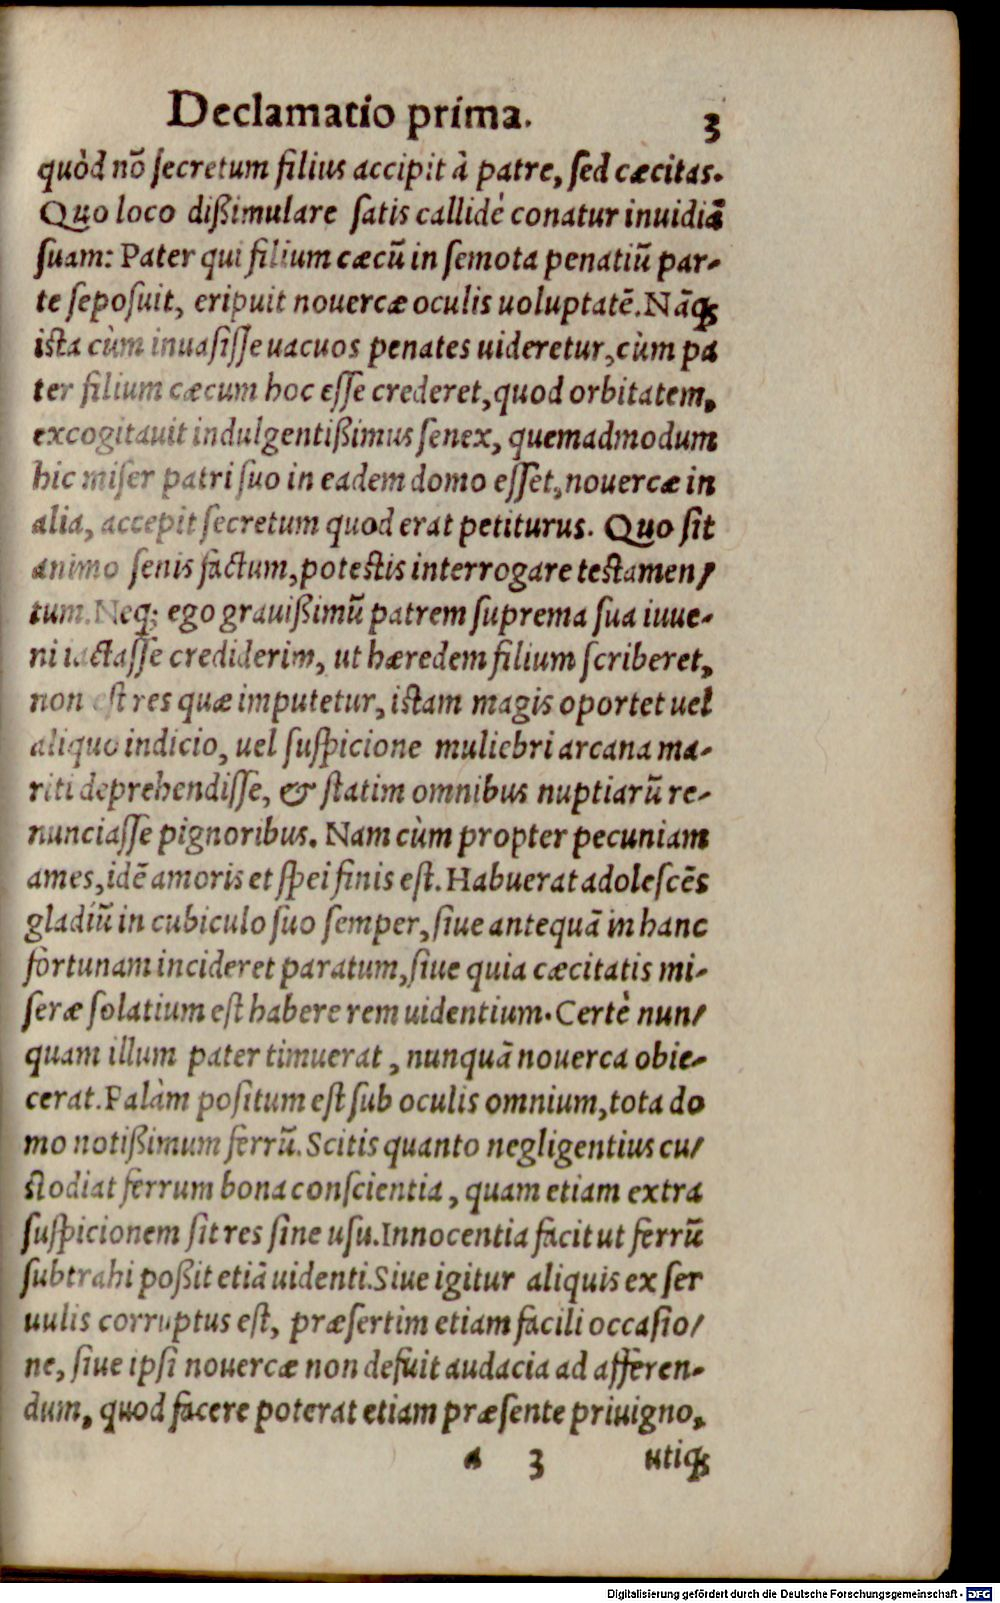 Declamatio prima. 3
quòd nō secretum filius accipit à patre, sed cæcitas.
Quo loco dißimulare satis callidè conatur inuidiā
suam: Pater qui filium cæcū in semota penatiū par-
te seposuit, eripuit nouercæ oculis uoluptatē. Nāq;
ista cùm inuasisse uacuos penates uideretur, cùm pa
ter filium cæcum hoc esse crederet, quod orbitatem,
excogitauit indulgentißimus senex, quemadmodum
hic miser patri suo in eadem domo esset, nouercæ in
alia, accepit secretum quod erat petiturus. Quo sit
animo senis factum, potestis interrogare testamen/
tum. Neq; ego grauißimū patrem suprema sua iuue-
ni iactasse crediderim, ut hæredem filium scriberet,
non est res quæ imputetur, istam magis oportet uel
aliquo indicio, uel suspicione muliebri arcana ma-
riti deprehendisse, & statim omnibus nuptiarū re-
nunciasse pignoribus. Nam cùm propter pecuniam
ames, idē amoris et spei finis est. Habuerat adolescēs
gladiū in cubiculo suo semper, siue antequā in hanc
fortunam incideret paratum, siue quia cæcitatis mi-
seræ solatium est habere rem uidentium. Certè nun/
quam illum pater timuerat, nunquā nouerca obie-
cerat. Palàm positum est sub oculis omnium, tota do
mo notißimum ferrū. Scitis quanto negligentius cu/
stodiat ferrum bona conscientia, quam etiam extra
suspicionem sit res sine usu. Innocentia facit ut ferrū
subtrahi poßit etiā uidenti. Siue igitur aliquis ex ser
uulis corruptus est, præsertim etiam facili occasio/
ne, siue ipsi nouercæ non defuit audacia ad afferen-
dum, quod facere poterat etiam præsente priuigno,
a 3 utiq;
Digitalisierung gefördert durch die Deutsche Forschungsgemeinschaft - DFG